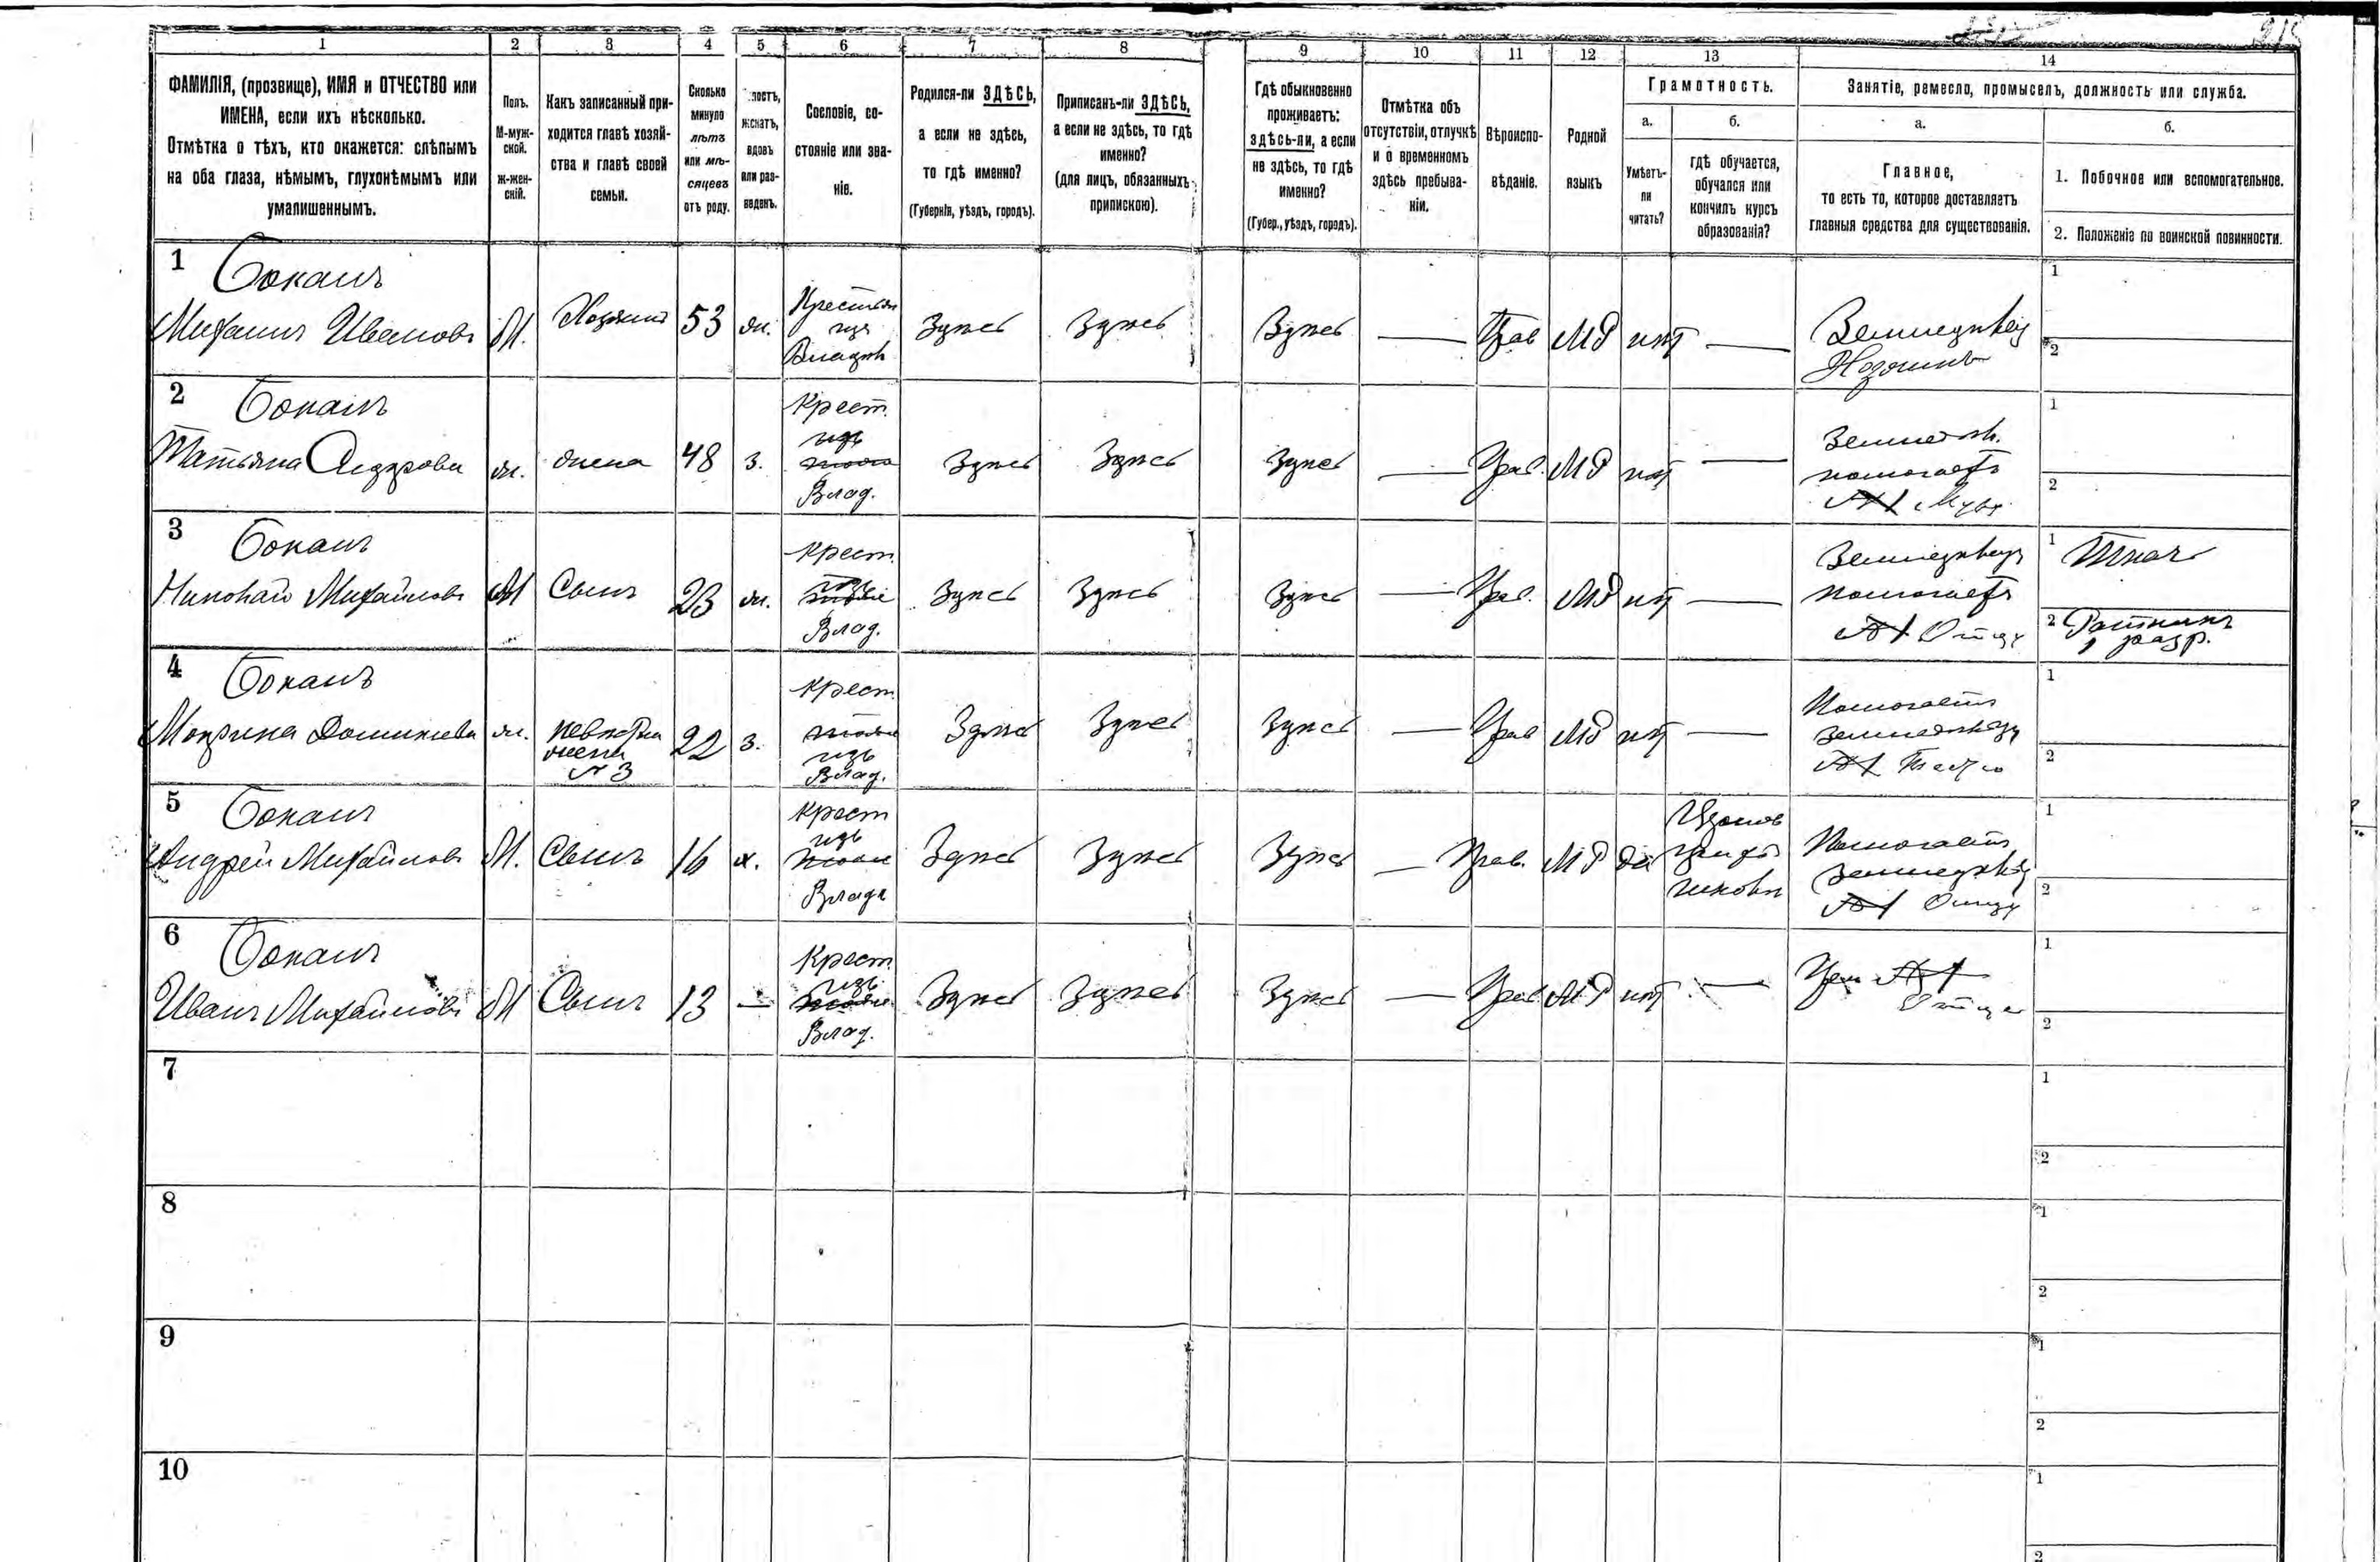 215
1 2 3 4 5 6 7 8 9 10 11 12 13 14
ФАМИЛІЯ, (прозвище), ИМЯ и ОТЧЕСТВО или
ИМЕНА, если ихъ нѣсколько.
Отмѣтка о тѣхъ, кто окажется: слѣпымъ
на оба глаза, нѣмымъ, глухонѣмымъ или
умалишеннымъ.
Полъ.
М-муж-
ской.
ж-жен-
скій.
Какъ записанный при-
ходится главѣ хозяй-
ства и главѣ своей
семьи.
Сколько
минуло
лѣтъ
или мѣ-
сяцевъ
отъ роду.
лостъ,
женатъ,
вдовъ
или раз-
веденъ.
Сословіе, со-
стояніе или зва-
ніе.
Родился-ли ЗДѢСЬ,
а если не здѣсь,
то гдѣ именно?
(Губернія, уѣздъ, городъ).
Приписанъ-ли ЗДѢСЬ,
а если не здѣсь, то гдѣ
именно?
(для лицъ, обязанныхъ
припискою).
Гдѣ обыкновенно
проживаетъ:
здѣсь-ли, а если
не здѣсь, то гдѣ
именно?
(Губер., уѣздъ, городъ).
Отмѣтка объ
отсутствіи, отлучкѣ
и о временномъ
здѣсь пребыва-
ніи.
Вѣроиспо-
вѣданіе.
Родной
языкъ
Грамотность.
а.
Умѣетъ-
ли
читать?
б.
гдѣ обучается,
обучался или
кончилъ курсъ
образованія?
Занятіе, ремесло, промыселъ, должность или служба.
а.
Главное,
то есть то, которое доставляетъ
главныя средства для существованія.
б.
1. Побочное или вспомогательное.
2. Положеніе по воинской повинности.
1 Боканъ
Михаилъ Ивановъ М. Хозяинъ 53 ж. Крестьян
изъ
Владѣ
Здѣсь Здѣсь Здѣсь — Прав МР нѣт — Земледѣлец
Хозяинъ
1
2
2 Боканъ
Татьяна ж. жена 48 з. Крест.
изъ
Влад.
Здѣсь Здѣсь Здѣсь — Прав. МР нѣт — Земледѣл.
помогаетъ
№1 Мужу
1
2
3 Боканъ
Николай Михайловъ М Сынъ 23 ж. Крест.
изъ
Влад.
Здѣсь Здѣсь Здѣсь — Прав. МР нѣт — Земледѣлец
помогаетъ
№1 Отцу
1 Ткачъ
2 Ратникъ
1 разр.
4 Боканъ
ж. невѣстка
жена
№ 3
22 з. Крест.
изъ
Влад.
Здѣсь Здѣсь Здѣсь — Прав МР нѣт — Помогаетъ
земледѣлцу
№1 Тестю
1
2
5 Боканъ
Андрей Михайловъ М. Сынъ 16 х. Крест
изъ
Владѣ
Здѣсь Здѣсь Здѣсь — Прав. МР да Помогаетъ
земледѣлц
№1 Отцу
1
2
6 Боканъ
Иванъ Михайловъ М Сынъ 13 — Крест.
изъ
Влад.
Здѣсь Здѣсь Здѣсь — Прав МР нѣт — При №1
Отцѣ
1
2
7
1
2
8
1
2
9
1
2
10
1
2